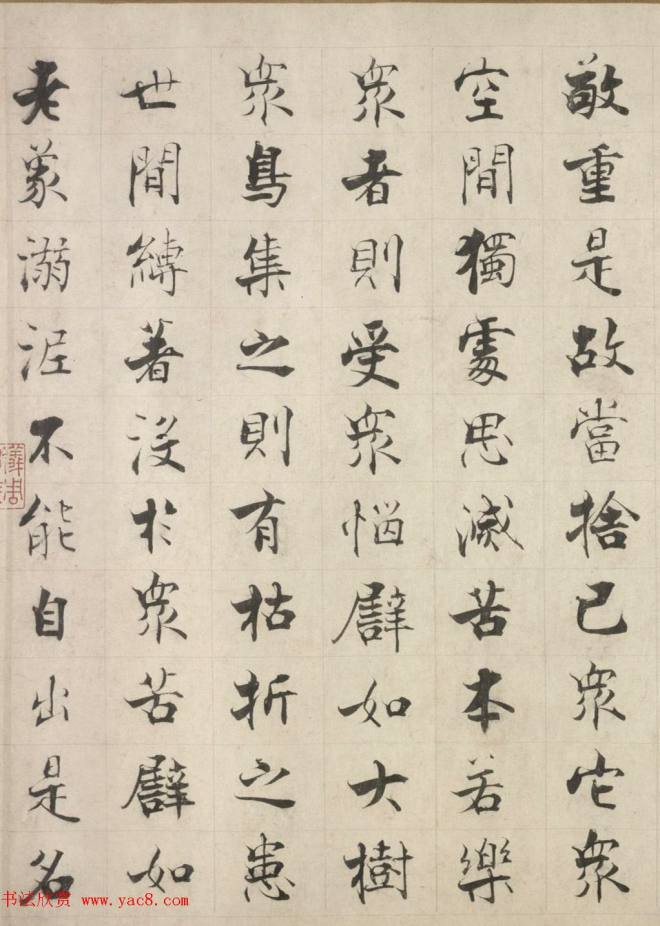 敬重是故當捨己眾它眾
空間獨處思滅苦本若樂
眾者則受眾惱譬如大樹
眾鳥集之則有枯折之患
世間縛著沒於眾苦譬如
老象溺泥不能自出是名
书法欣赏 www.yac8.com